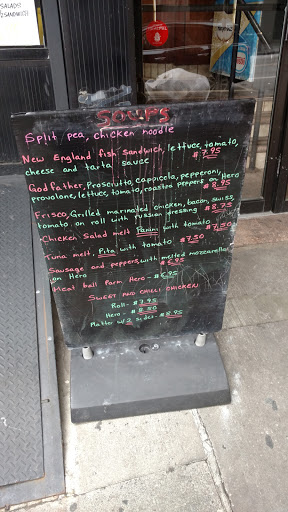 SALADS!
/2 SANDWICH
SOUPS
Split pea, chicken noodle
New England fish sandwich, lettuce, tomato, $7.95
cheese and tarta sauce
Godfather, Prosciutto, Cappicola, pepperoni,
provalone, lettuce, tomato, roasted peppers on Hero $8.95
Frisco, Grilled marinated chicken, bacon, swiss,
tomato on roll with russian dressing $8.95
Chicken Salad melt Panini with tomato $7.50
Tuna melt, Pita with tomato $7.50
Sausage and peppers with melted mozzarella
on Hero $6.95
Meat ball Parm Hero - $6.95
SWEET AND CHILLI CHICKEN
Roll - $7.95
Hero - $8.50
Platter w/2 sides - $8.95